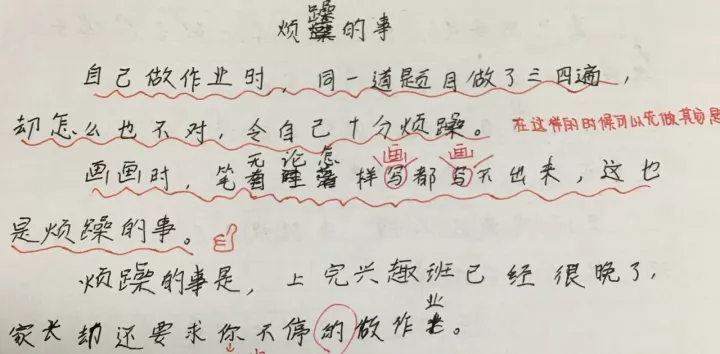 烦躁的事
自己做作业时，同一道题目做了三四遍，
却怎么也不对，令自己十分烦躁。 在这样的时候可以先做其它题
画 画
画画时，笔无论怎样写都写不出来，这也
是烦躁的事。
烦躁的事是，上完兴趣班已经很晚了，
家长却还要求你不停的做作业。